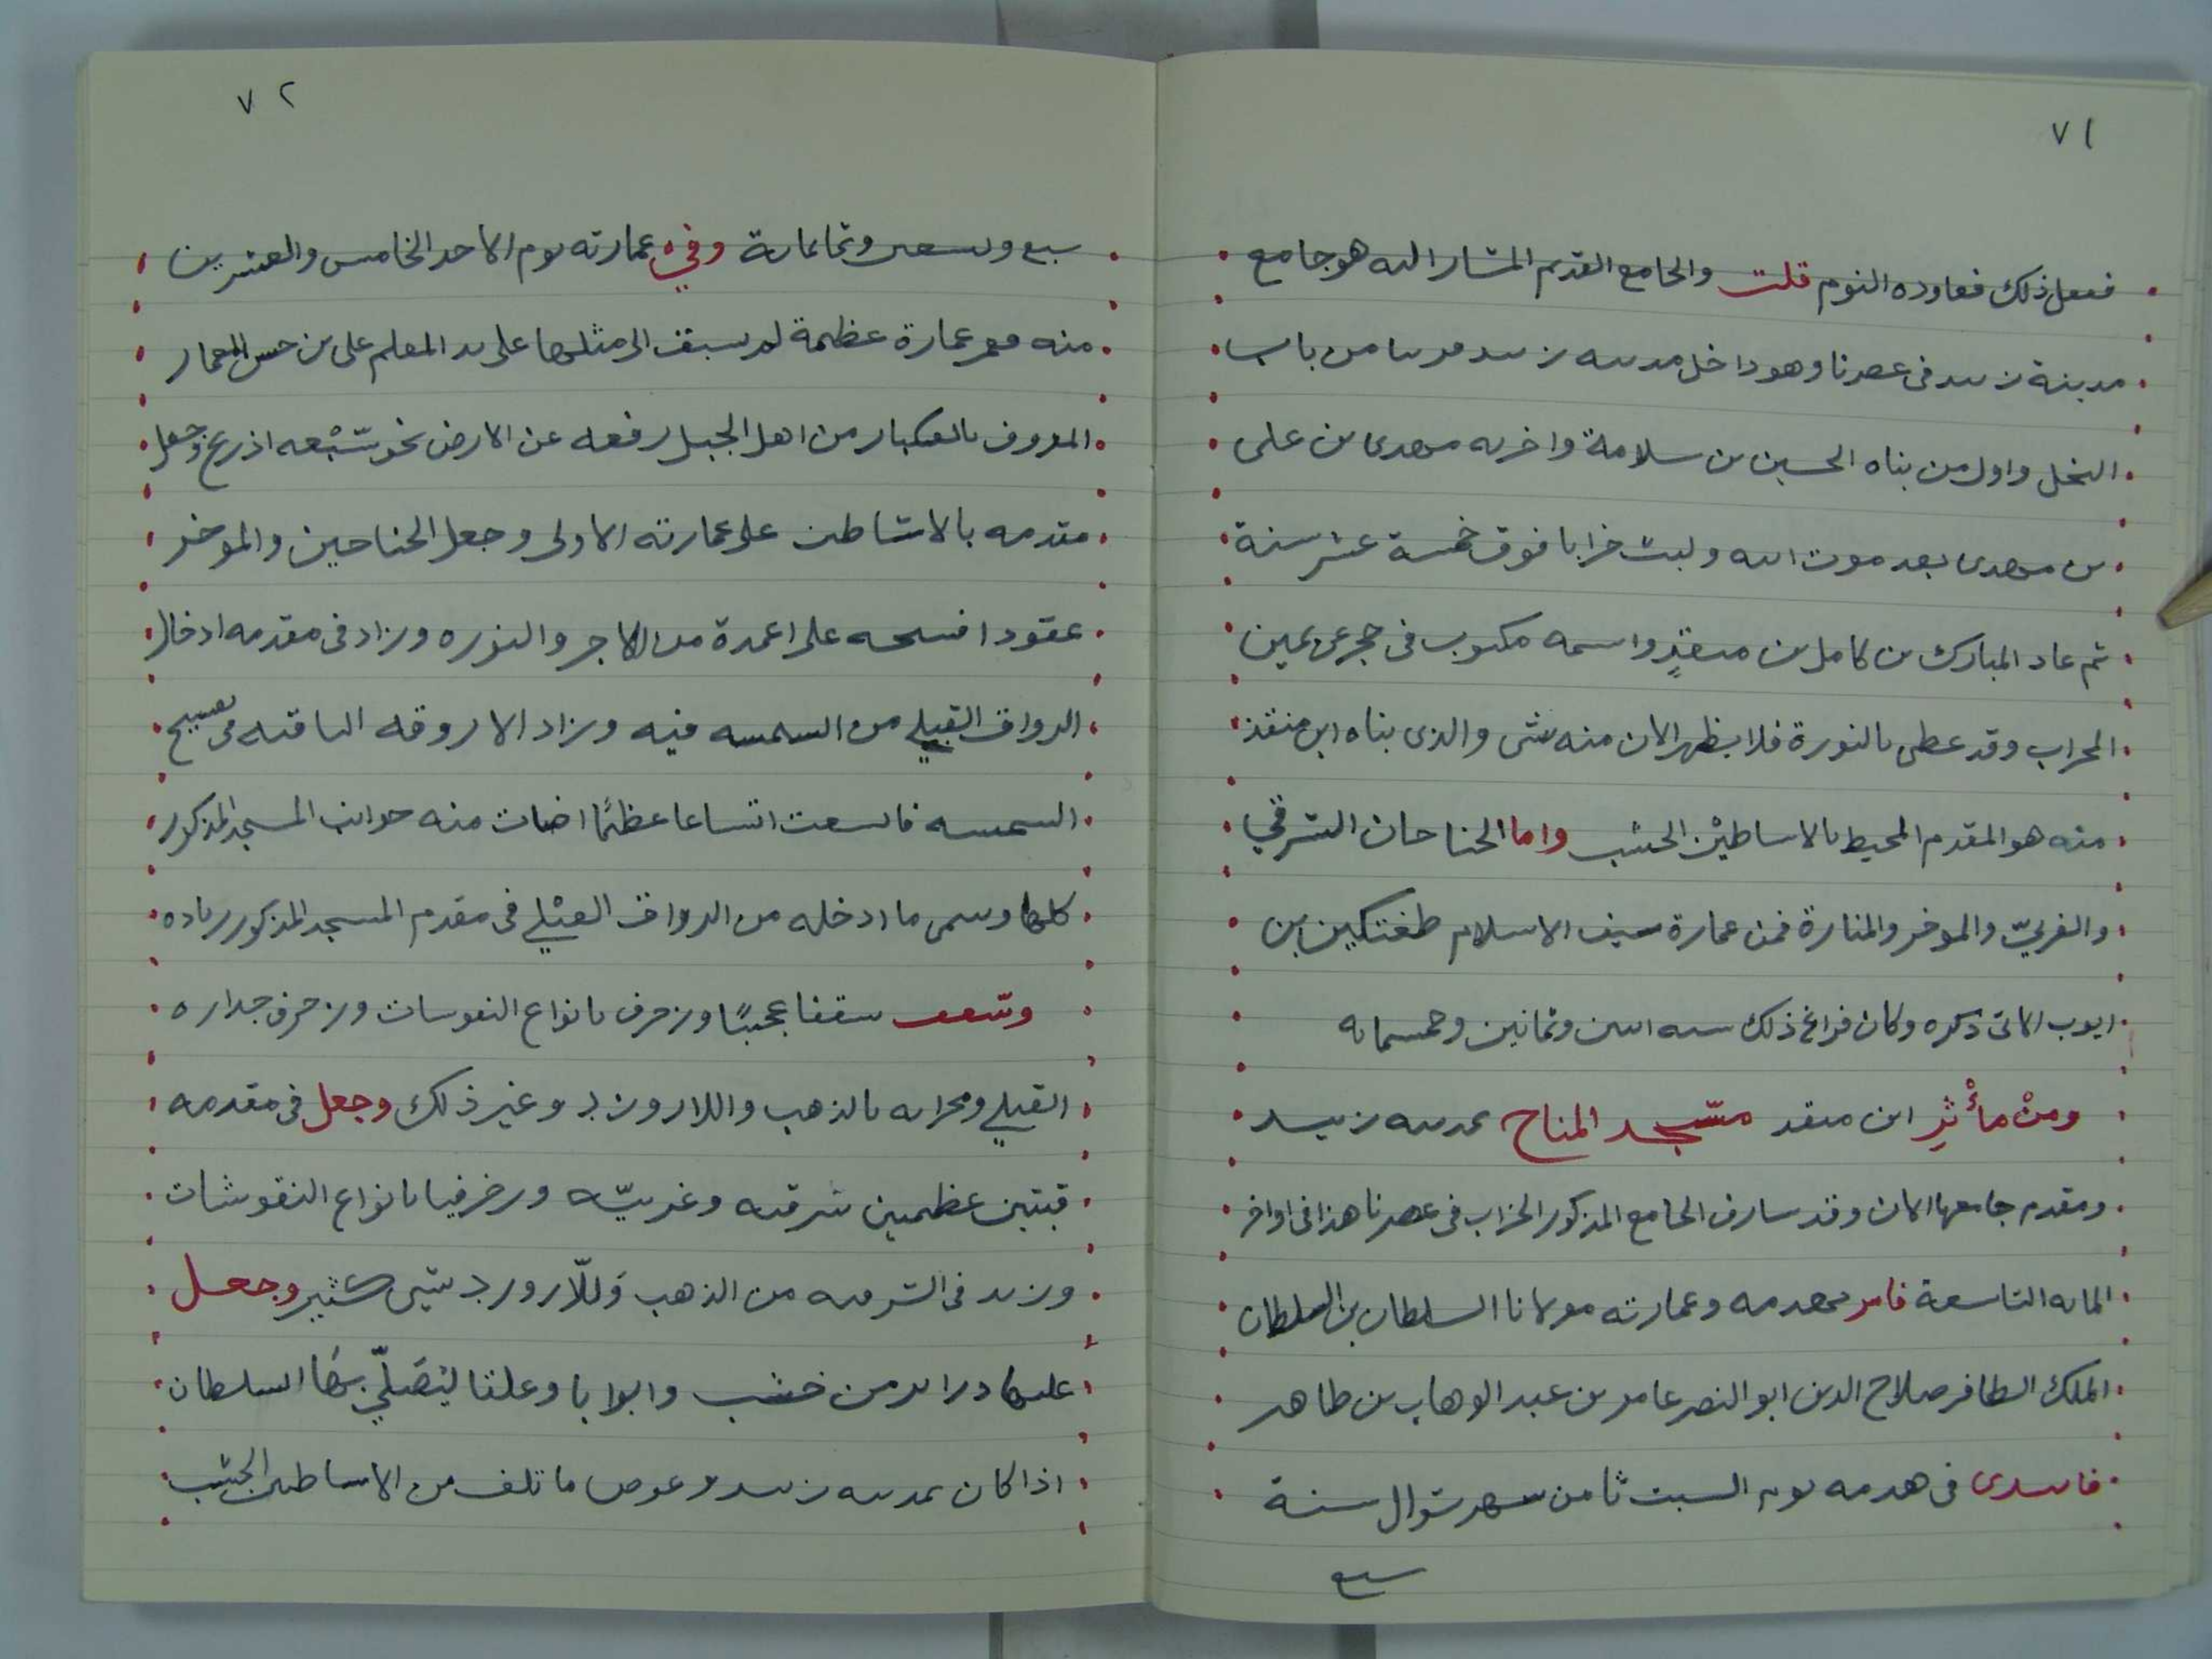 ٧١
ففعل ذلك فعاوده النوم قلت والجامع القديم المشار اليه هو جامع
مدينة زبيد فى عصرنا وهو داخل مدينه زبيد قريبا من باب
النخل واول من بناه الحسين بن سلامة واخربه مهدى بن على
بن مهدى بعد موت ابيه ولبث خرابا فوق خمسة عشر سنة
ثم عاد المبارك بن كامل بن منقذٍ واسمه مكتوب فى حجر عن يمين
المحراب وقد غطى بالنورة فلا يظهر الان منه شى والذى بناه ابن منقذ
منه هو المقدم المحيط بالاساطيْن الخشب واما الجناحان الشرقي
والغربيّ والموخر والمنارة فمن عمارة سيف الاسلام طغتكين بن
ايوب الاتى ذكره وكان فراغ ذلك سنه اثنين وثمانين وخمسمايه
ومنْ مأْثرِ ابن منقد مسّجد المناخ بمدينه زبيد
ومقدم جامعها الان وقد سارف الجامع المذكور الخراب فى عصرنا هذا فى اواخر
المايه التاسعة فامر بهدمه وعمارته مولانا السلطان بن السلطان
الملك الظافر صلاح الدين ابو النصر عامر بن عبد الوهاب بن طاهر
فابتدى فى هدمه يوم السبت ثامن شهر شوال سنة
سبع
٧٢
سبع وتسعين وثمانماية وفي عمارته يوم الاحد الخامس والعشرين
منه فعمر عمارة عظيمة لم يسبق الى مثلها على يد المعلم على بن حسن المعمار
المعروف بالعكبار من اهل الجبل رفعه عن الارض نحو سّبْعه اذرع وجعل
مقدمه بالاشاطين على عمارته الاولى وجعل الجناحين والموخر
عقودا فسيحه على اعمدة من الاجر والنوره وزاد فى مقدمه ادخال
الرواق القبلي من الشمسه فيه وزاد الاروقه الباقيه فى تصبيح
الشمسه فاتسعت اتساعا عظيمًا اضات منه جوانب المسجد المذكور
كلها وسمى ما ادخله من الرواق القبْلي فى مقدم المسجد المذكور زياده
وسّقف سقفا عجيبًا وزخرف بانواع النقوسات وزخرف جداره
القبلي ومحرابه بالذهب واللازورد وغير ذلك وجعل فى مقدمه
قبتين عظيمتين شرقيه وغربيّه وزخرفها بانواع النقوشات
وزيد فى الشرقيه من الذهب وَللّازورد شيى كثير وجعل
عليها درابز من خشب وابوابا وعلقا ليُصَلّي بهَا السلطان
اذا كان بمدينه زبيد وعوض ما تلف من الاساطين الخشب